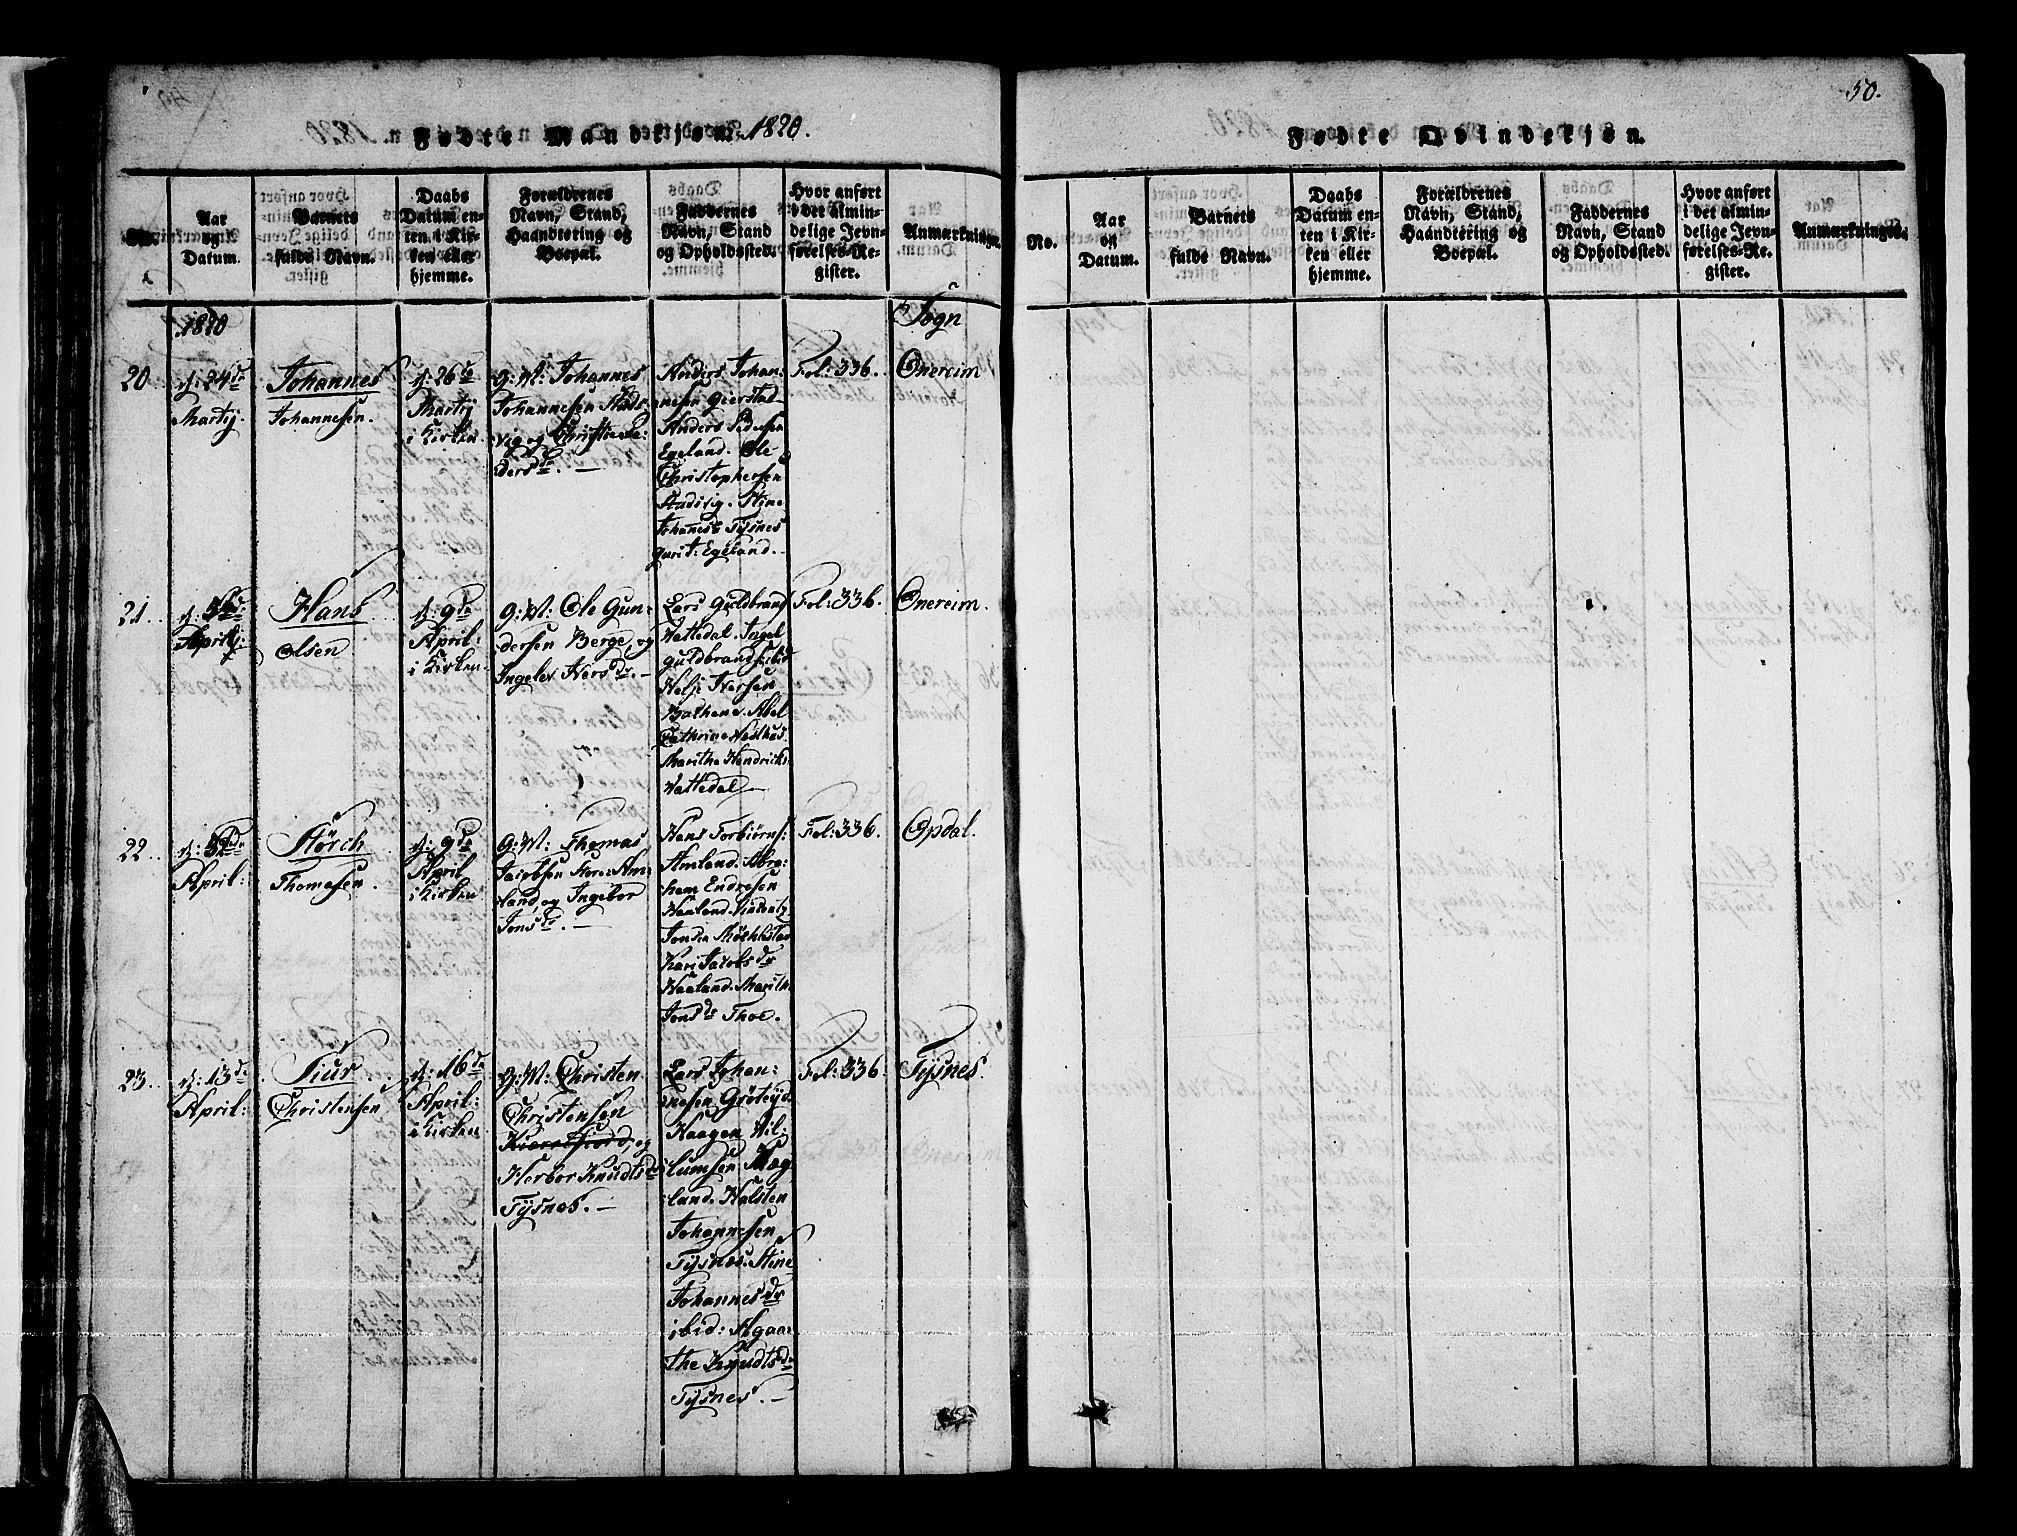 Fødte Mandkjøn. 1820.
No.
Aar
og
Datum.
Barnets
fulde Navn.
Daabs
Datum en-
ten i Kir-
ken eller
hjemme.
Forældrenes
Navn, Stand,
Haandtering og
Boepæl.
Faddernes
Navn, Stand
og Opholdssted.
Hvor anført
i det almin-
delige Jevn-
førelses-Re-
gister.
Anmærkninger.
1820
Sogn
20
d: 24de
Martij.
Johannes
Johannesen.
d: 26de
Martij
i Kirken.
G: M: Johannes
Johannesen Stads-
vig og Christie Pe-
dersdr. —
Anders Johan-
nesen Gierstad
Anders Pedersen
Egeland. Ole
Christophersen
Stadsvig. Stine
Johannesd Tysnes
Gurit: Egeland.
Fol: 336.
Onereim
21.
April:
Hans
Olsen
d: 9de
April:
i Kirken.
G: M: Ole Gun-
dersen Berge, og
Ingelev Iversdr. —
Lars Guldbrand
Vattedal. Ingel
Guldbrands: ibid
Helje Iversen
Bathene. Abel
Cathrine Vesthus.
Marithe Hendricks:
Vattedal
Fol: 336.
Onereim.
22.
April:
Störch
Thomesen.
d: 9de
April
i Kirken.
G: M: Thomas
Jacobsen Nore: Am-
land, og Ingebor
Jonsdr. —
Hans Torbiörns:
Amland. Abra-
ham Endresen
Haaland.
Kari Jacobsdr
Haaland. Marith:
Jonsdr Thoe.
Fol: 336.
Opdal.
23.
d: 13de
April:
Siur
Christensen
d: 16de
April:
i Kirken
G: M: Christen
Christensen
og
Herbor Knudtsdr
Tysnes. —
Lars Johan-
nesen Gröteijd
Haagen Vil-
lumsen Mæg-
land. Halsten
Johannesen
Tysnes. Stine
Johannesdr
ibid: Agaa-
the Knudtsdr
Tysnes. —
Fol: 336.
Tysnes.
50.
Fødte Qvindekjøn.
No.
Aar
og
Datum.
Barnets
fulde Navn.
Daabs
Datum en-
ten i Kir-
ken eller
hjemme.
Forældrenes
Navn, Stand,
Haandtering og
Boepæl.
Faddernes
Navn, Stand
og Opholdssted.
Hvor anført
i det almin-
delige Jevn-
førelses-Re-
gister.
Anmærkninger.